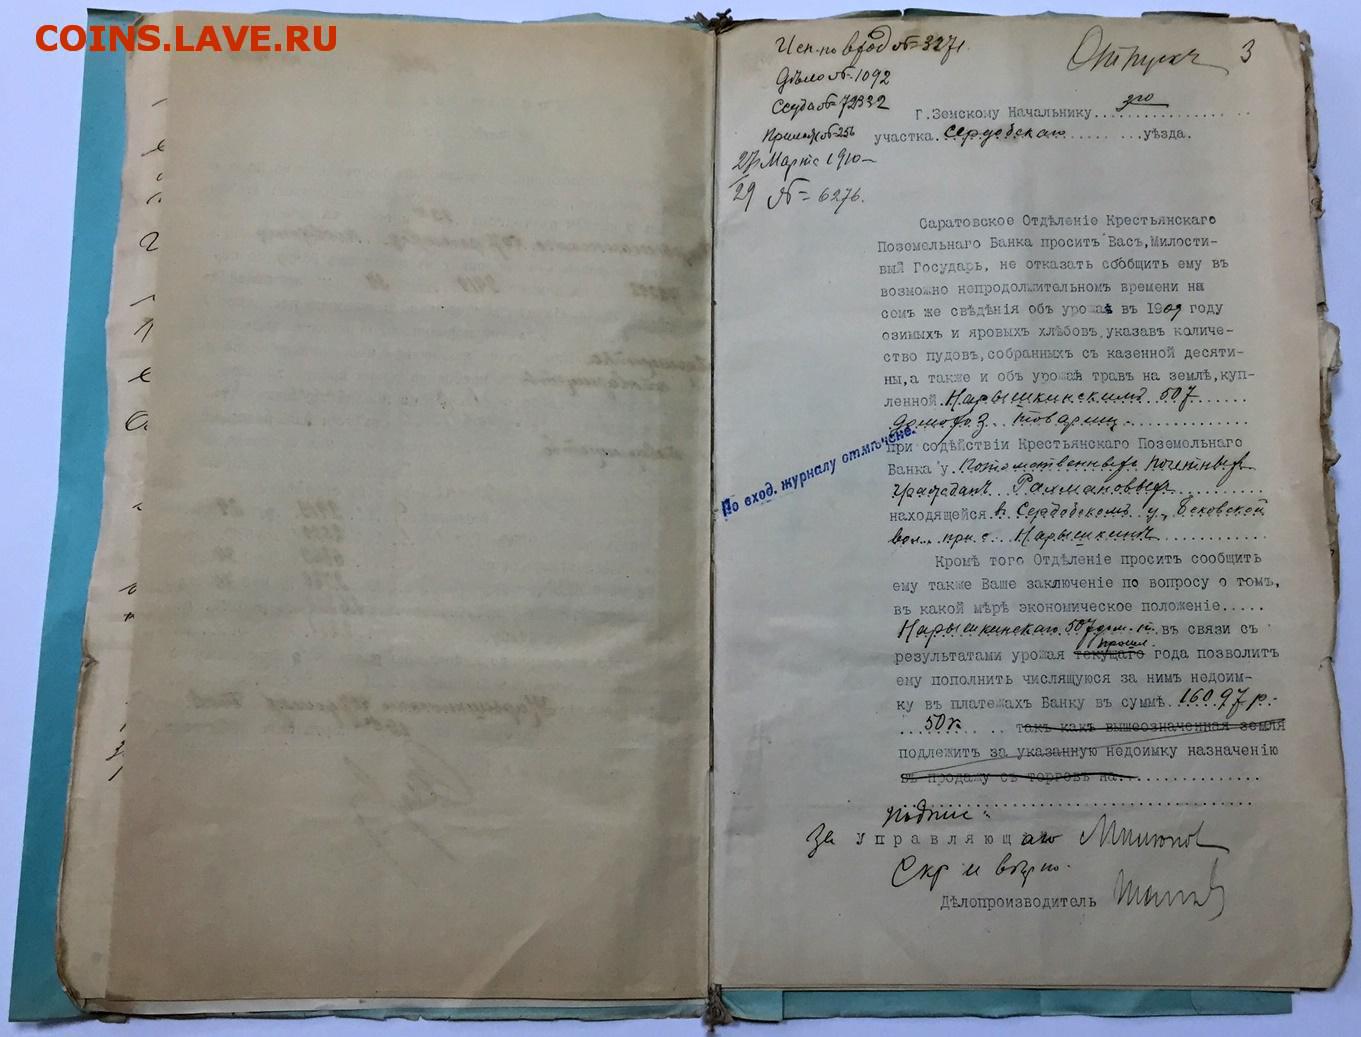 COINS.LAVE.RU
Исп. по вход № 3271
Дѣло № 1092
Ссуда № 72332
27 Марта 1910
29 № 6276.
Отпускъ 3
Г. Земскому Начальнику 3го
участка Сердобскаго уѣзда.
Саратовское Отдѣленіе Крестьянскаго
Поземельнаго Банка проситъ Васъ, Милости-
вый Государь, не отказать сообщить ему въ
возможно непродолжительномъ времени на
семъ же свѣдѣнія объ урожаѣ въ 1909 году
озимыхъ и яровыхъ хлѣбовъ, указавъ количе-
ство пудовъ, собранныхъ съ казенной десяти-
ны, а также и объ урожаѣ травъ на землѣ, куп-
ленной Нарышкинскимъ 507
домохоз. товарищ.
По вход. журналу отмѣчено.
при содѣйствіи Крестьянскаго Поземельнаго
Банка у Потомственныхъ Почетныхъ
Гражданъ Рахмановыхъ
находящейся въ Сердобскомъ у., Бековской
вол. при с. Нарышкинѣ
Кромѣ того Отдѣленіе проситъ сообщить
ему также Ваше заключеніе по вопросу о томъ,
въ какой мѣрѣ экономическое положеніе.....
Нарышкинскаго 507 дом. т. въ связи съ
прошл.
результатами урожая текущаго года позволитъ
ему пополнить числящуюся за нимъ недоим-
ку въ платежахъ Банку въ суммѣ 16097 р.
50 к такъ какъ вышеозначенная земля
подлежитъ за указанную недоимку назначенію
въ продажу съ торговъ на
Подпис.
За управляющаго
Скр и вѣрно.
Дѣлопроизводитель